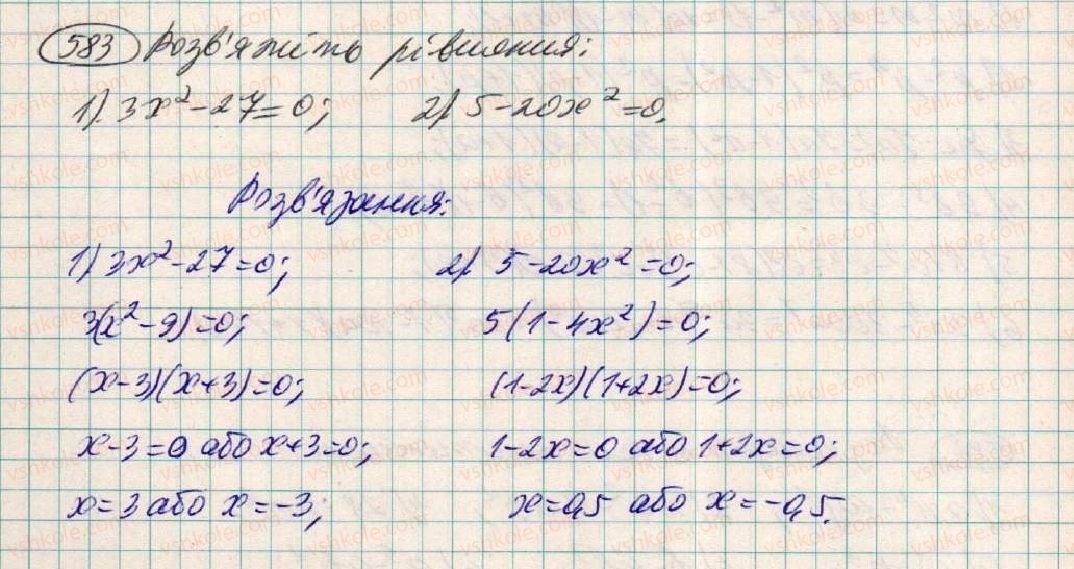 583 Розв'яжіть рівняння:
1) 3x² - 27 = 0; 2) 5 - 20x² = 0.
Розв'язання:
1) 3x² - 27 = 0; 2) 5 - 20x² = 0;
3(x² - 9) = 0; 5(1 - 4x²) = 0;
(x - 3)(x + 3) = 0; (1 - 2x)(1 + 2x) = 0;
x - 3 = 0 або x + 3 = 0; 1 - 2x = 0 або 1 + 2x = 0;
x = 3 або x = -3; x = 0,5 або x = -0,5.
vshkole.com